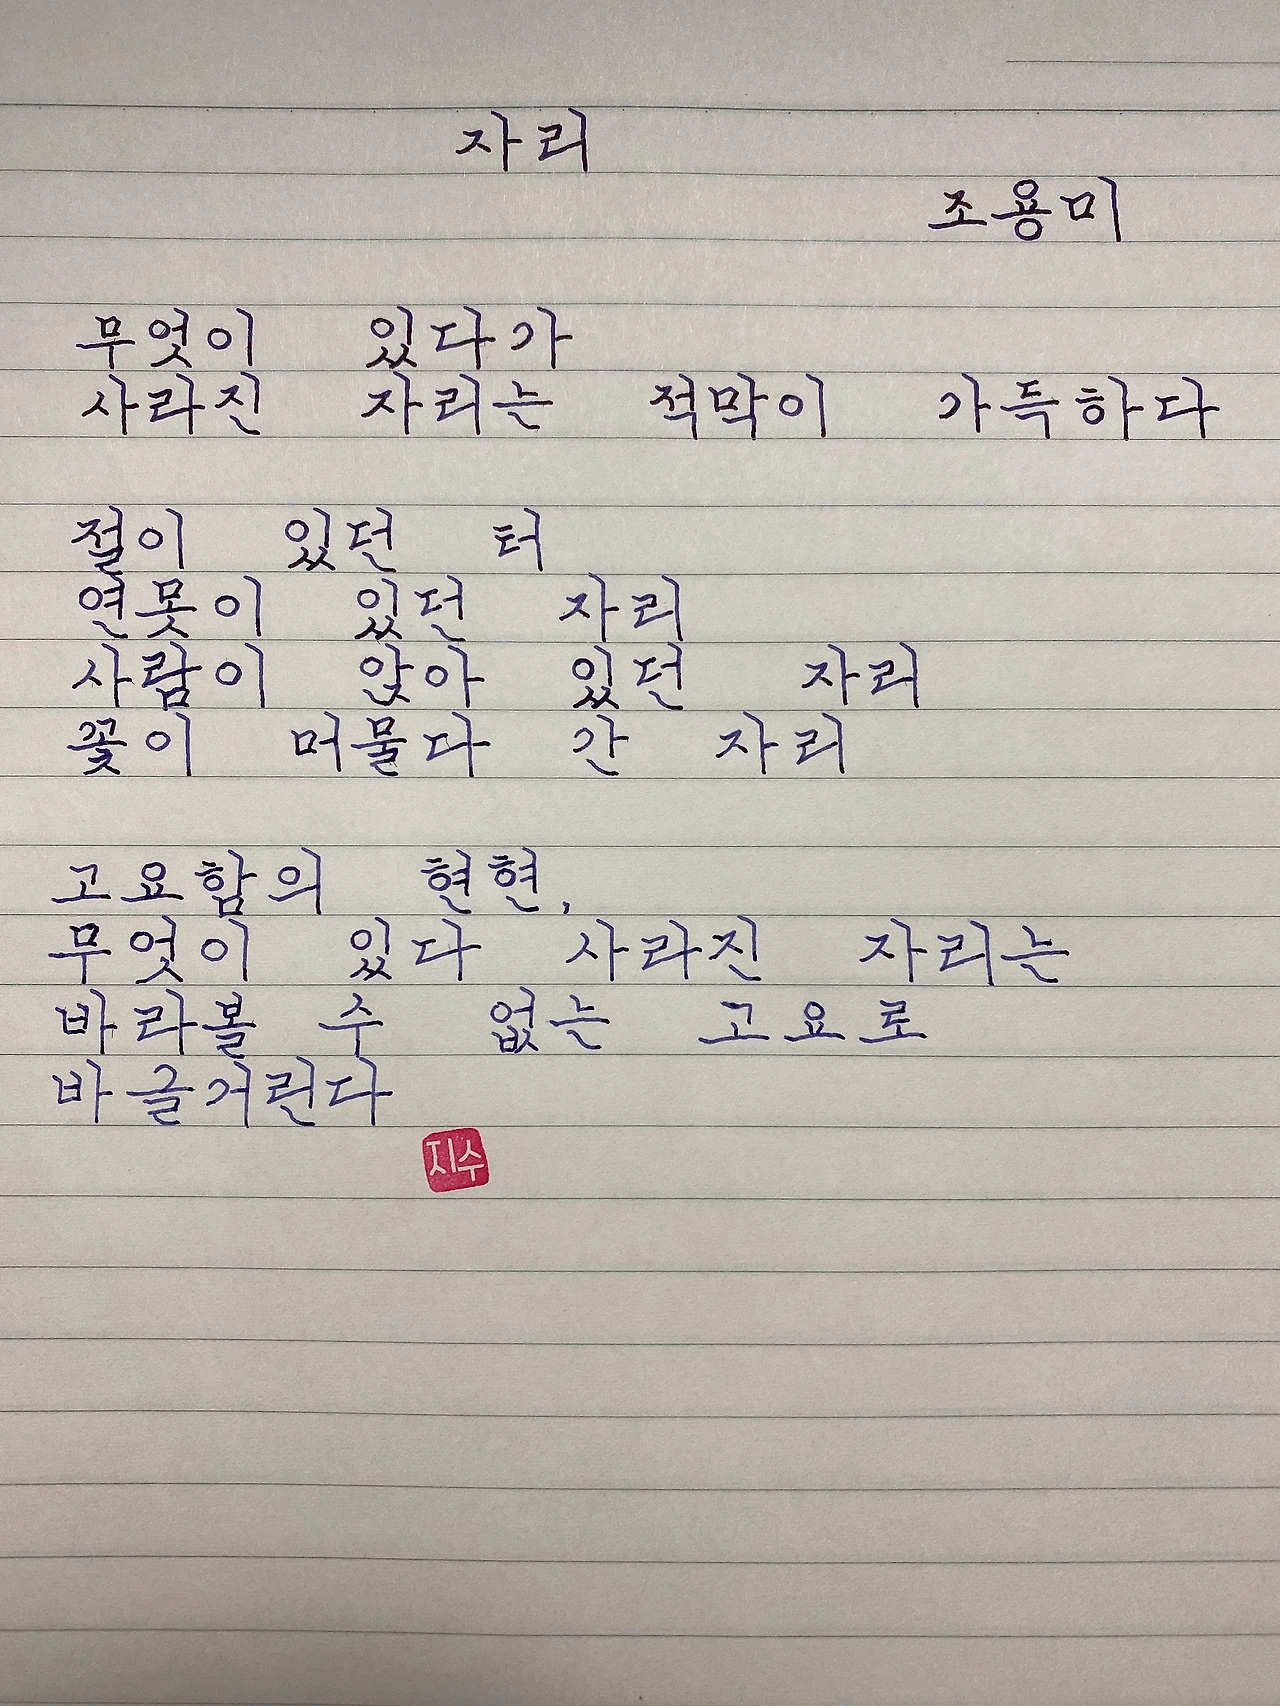 자리
조용미
무엇이 있다가
사라진 자리는 적막이 가득하다
절이 있던 터
연못이 있던 자리
사람이 앉아 있던 자리
꽃이 머물다 간 자리
고요함의 현현,
무엇이 있다 사라진 자리는
바라볼 수 없는 고요로
바글거린다
지수